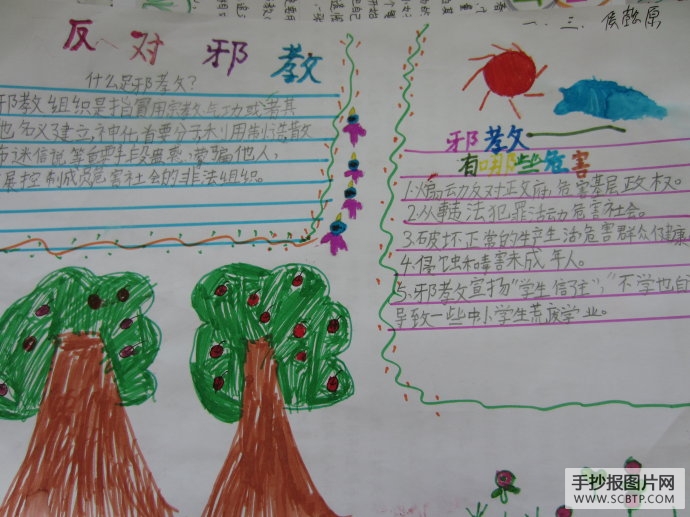 一、三、侯懿原
反对邪教
什么是邪教?
邪教组织是指冒用宗教气功或者其
他名义建立,神化首要分子利用制造散
布迷信说等要手段蛊惑,蒙骗他人,
展控制成员危害社会的非法组织。
邪教
有哪些危害
1.煽动反对正政府,危害基层政权。
2.从事违法犯罪活动危害社会。
3.破坏正常的生产生活危害群众健康
4.侵蚀和毒害未成年人。
5.邪教宣扬"学生信主","不学也自
导致一些中小学生荒废学业。
手抄报图片网
WWW.SCBTP.COM